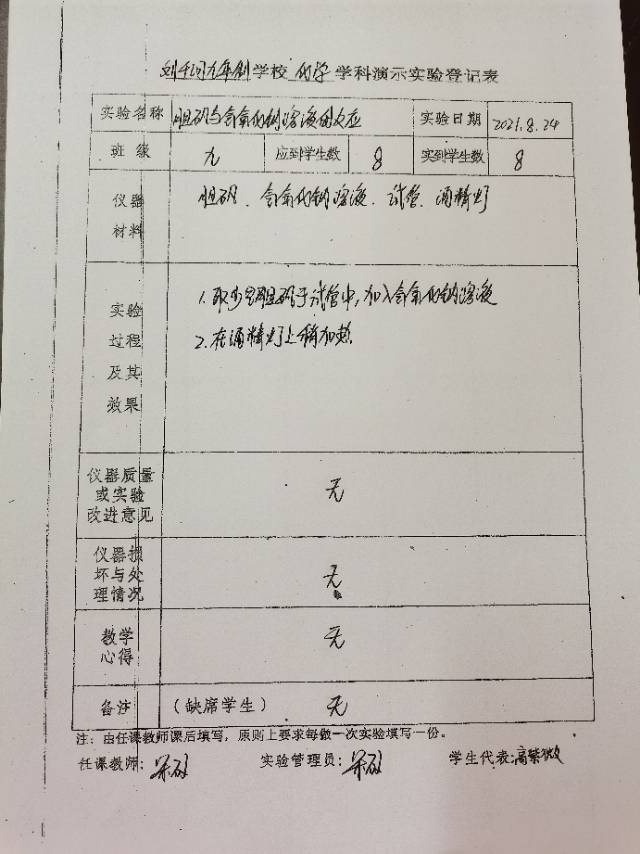 九年制学校 化学 学科演示实验登记表
实验名称 胆矾与氢氧化钠溶液的反应 实验日期 2021.8.24
班级 九 应到学生数 8 实到学生数 8
仪器 胆矾、氢氧化钠溶液、试管、酒精灯
材料
实验 1.取少量胆矾于试管中,加入氢氧化钠溶液
过程 2.在酒精灯上稍加热
及其
效果
仪器质量
或实验 无
改进意见
仪器损
坏与处 无
理情况
教学 无
心得
备注 (缺席学生) 无
注:由任课教师课后填写,原则上要求每做一次实验填写一份。
任课教师: 实验管理员: 学生代表:高紫微